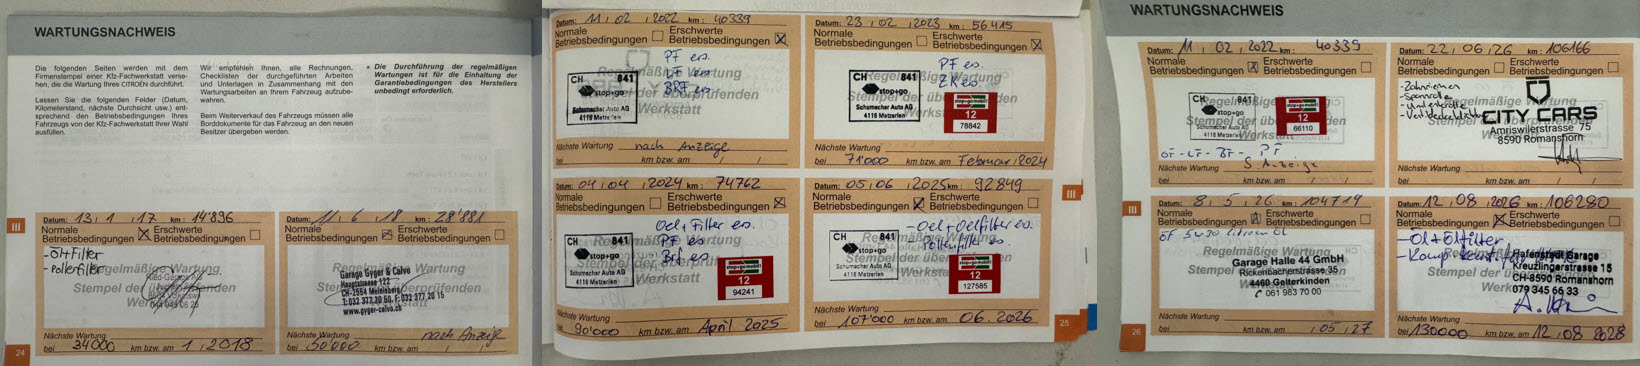 WARTUNGSNACHWEIS
Die folgenden Seiten werden mit dem
Firmenstempel einer Kfz-Fachwerkstatt verse-
hen, die die Wartung Ihres CITROËN durchführt.
Lassen Sie die folgenden Felder (Datum,
Kilometerstand, nächste Durchsicht usw.) ent-
sprechend den Betriebsbedingungen Ihres
Fahrzeugs von der Kfz-Fachwerkstatt Ihrer Wahl
ausfüllen.
Wir empfehlen Ihnen, alle Rechnungen,
Checklisten der durchgeführten Arbeiten
und Unterlagen in Zusammenhang mit den
Wartungsarbeiten an Ihrem Fahrzeug aufzube-
wahren.
Beim Weiterverkauf des Fahrzeugs müssen alle
Borddokumente für das Fahrzeug an den neuen
Besitzer übergeben werden.
* Die Durchführung der regelmäßigen
Wartung ist für die Einhaltung der
Garantiebedingungen des Herstellers
unbedingt erforderlich.
III
Datum: 13, 1, 17 km: 14'896
Normale Betriebsbedingungen
Erschwerte Betriebsbedingungen
- Öl+Filter
- Pollenfilter
Regelmäßige Wartung
Stempel der überprüfenden
Werkstatt
Nächste Wartung
bei 34000 km bzw. am 1, 2018
Datum: 11, 6, 18 km: 28'881
Normale Betriebsbedingungen
Erschwerte Betriebsbedingungen
Regelmäßige Wartung
Stempel der überprüfenden
Werkstatt
Garage Gyger & Calvo
Hauptstrasse 122
CH-2554 Meinisberg
T: 032 377 20 50, F: 032 377 20 15
www.gyger-calvo.ch
Nächste Wartung nach Anzeige
bei 50'000 km bzw. am
24
Datum: 11, 02, 2022 km: 40339
Normale Betriebsbedingungen
Erschwerte Betriebsbedingungen
PF es.
LF es.
BRF es.
Regelmäßige Wartung
Stempel der überprüfenden
Werkstatt
CH 841
stop+go
Schumacher Auto AG
4116 Metzerlen
Nächste Wartung nach Anzeige
bei km bzw. am
Datum: 23, 02, 2023 km: 56415
Normale Betriebsbedingungen
Erschwerte Betriebsbedingungen
PF es.
ZK es.
Regelmäßige Wartung
Stempel der überprüfenden
Werkstatt
CH 841
stop+go
Schumacher Auto AG
4116 Metzerlen
12
78842
Nächste Wartung
bei 71'000 km bzw. am Februar 2024
Datum: 04, 04, 2024 km: 74762
Normale Betriebsbedingungen
Erschwerte Betriebsbedingungen
Oel+Filter es.
PF es.
Brf es.
Regelmäßige Wartung
Stempel der überprüfenden
Werkstatt
CH 841
stop+go
Schumacher Auto AG
4116 Metzerlen
12
94241
Nächste Wartung
bei 90'000 km bzw. am April 2025
Datum: 05, 06, 2025 km: 92849
Normale Betriebsbedingungen
Erschwerte Betriebsbedingungen
- Oel+Oelfilter es.
Pollenfilter es.
Regelmäßige Wartung
Stempel der überprüfenden
Werkstatt
CH 841
stop+go
Schumacher Auto AG
4116 Metzerlen
12
127585
Nächste Wartung
bei 107'000 km bzw. am 06.2026
III
25
WARTUNGSNACHWEIS
Datum: 11, 02, 2022 km: 40339
Normale Betriebsbedingungen
Erschwerte Betriebsbedingungen
Regelmäßige Wartung
Stempel der überprüfenden
Werkstatt
CH 841
stop+go
Schumacher Auto AG
4116 Metzerlen
12
66110
ÖF - LF - BF - PF
Nächste Wartung S. Anzeige
bei km bzw. am
Datum: 22, 06, 26 km: 106166
Normale Betriebsbedingungen
Erschwerte Betriebsbedingungen
- Zahnriemen
- Spannrolle
- Umlenkrolle
Regelmäßige Wartung
Stempel der überprüfenden
Werkstatt
CITY CARS
Amriswilerstrasse 75
8590 Romanshorn
Nächste Wartung
bei km bzw. am
III
Datum: 8, 5, 26 km: 104719
Normale Betriebsbedingungen
Erschwerte Betriebsbedingungen
ÖF 5w30 Citroen Öl
Regelmäßige Wartung
Stempel der überprüfenden
Werkstatt
Garage Halle 44 GmbH
Rickenbacherstrasse 35
4460 Gelterkinden
061 983 70 00
Nächste Wartung
bei km bzw. am 05, 27
Datum: 12, 08, 2026 km: 106280
Normale Betriebsbedingungen
Erschwerte Betriebsbedingungen
- Öl+Ölfilter
Regelmäßige Wartung
Stempel der überprüfenden
Werkstatt
Hafenstadt Garage
Kreuzlingerstrasse 15
CH-8590 Romanshorn
079 345 66 33
Nächste Wartung
bei 130000 km bzw. am 12, 08 2028
26